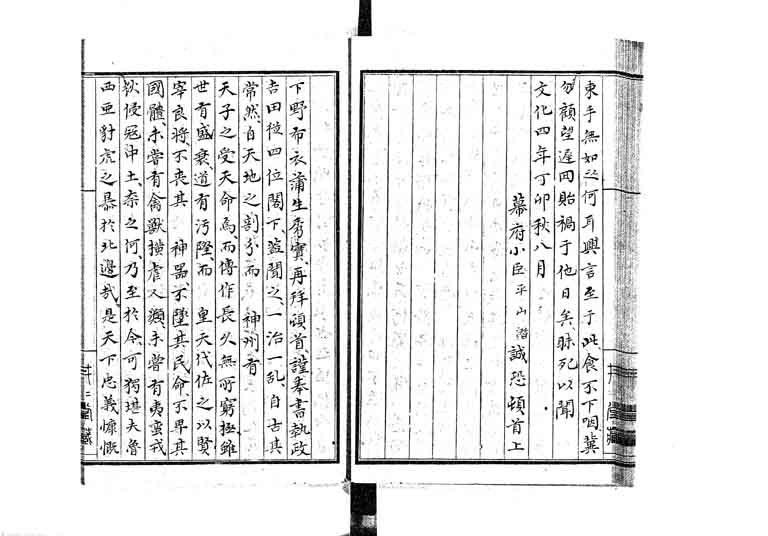 東手無如之何耳興言至于此食不下咽冀
勿顧望遲回貽禍于他日矣昧死以聞
文化四年丁卯秋八月
幕府小臣平山潛誠恐頓首上
下野布衣蒲生秀實再拜頓首謹奉書執政
吉田從四位閣下蓋聞之一治一亂自古其
常然自天地之割分而 神州有
天子之受天命焉而傳作長久無所窮極雖
世有盛衰道有污隆而 皇天代佐之以賢
宰良將不喪其 神器不墜其民命不畀其
國體未嘗有禽獸橫虐人類未嘗有夷蠻戎
狄侵冠中土奈之何乃至於今可獨堪夫魯
西亜豺虎之暴於北邊哉是天下忠義慷慨